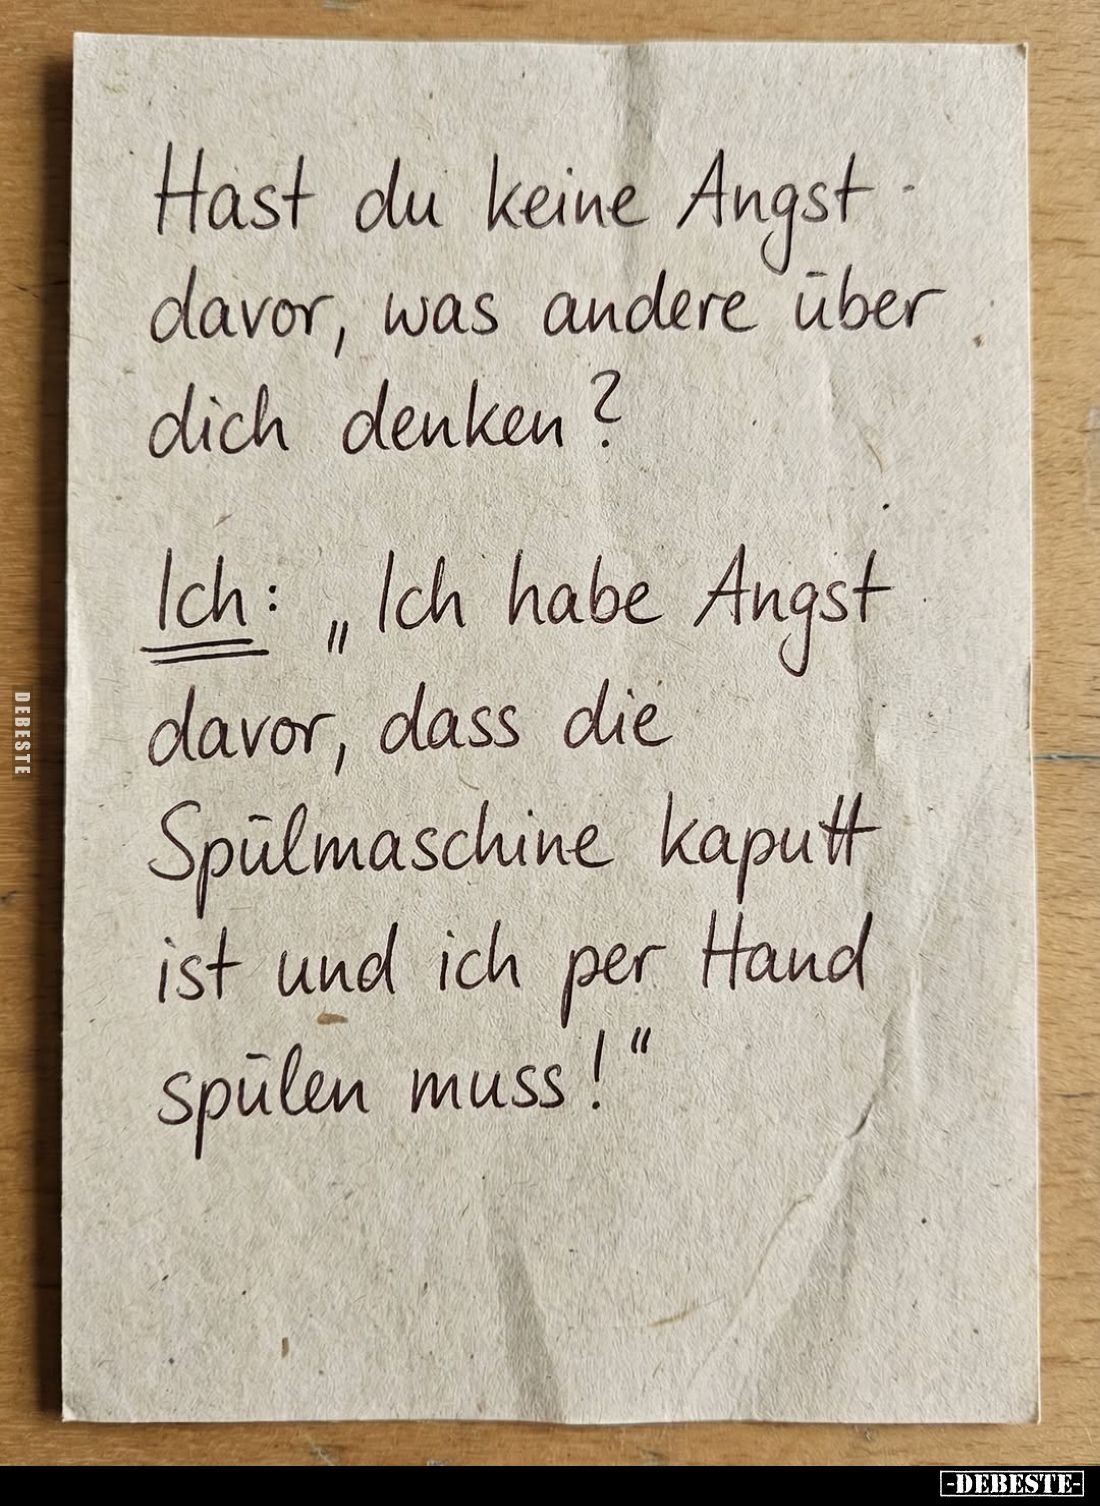 Hast du keine Angst
davor, was andere über
dich denken?
Ich: „Ich habe Angst
davor, dass die
Spülmaschine kaputt
ist und ich per Hand
spülen muss!“
DEBESTE
-DEBESTE-